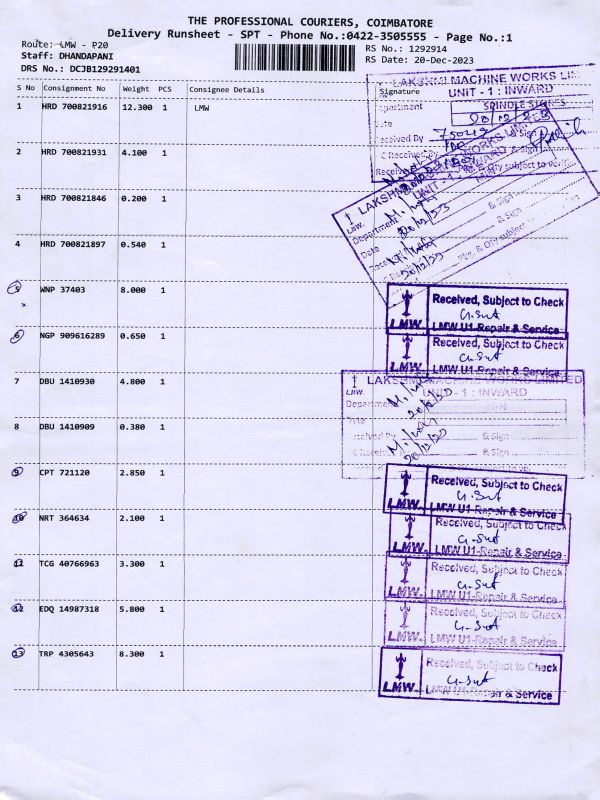 THE PROFESSIONAL COURIERS, COIMBATORE
Delivery Runsheet - SPT - Phone No.:0422-3505555 - Page No.:1
Route: LMW - P20
RS No.: 1292914
Staff: DHANDAPANI
RS Date: 20-Dec-2023
DRS No.: DCJB129291401
S No Consignment No Weight PCS Consignee Details Signature
1 HRD 700821916 12.300 1 LMW
LAKSHMI MACHINE WORKS LIM
UNIT - 1 : INWARD
SPINDLE STORES
20/12/23
75049
2 HRD 700821931 4.100 1
3 HRD 700821846 0.200 1
4 HRD 700821897 0.540 1
LAKSHMI MACHINE WORKS LIMITED
UNIT - 1 : INWARD
LMW.
Department
Date
& Sign
& Sign
5 WNP 37403 8.000 1
Received, Subject to Check
LMW. LMW U1-Repair & Service
6 NGP 909616289 0.650 1
Received, Subject to Check
LMW. LMW U1-Repair & Service
7 DBU 1410930 4.800 1
LAKSHMI MACHINE WORKS LIMITED
LMW. UNIT - 1 : INWARD
Department
8 DBU 1410909 0.380 1
& Sign
& Sign
9 CPT 721120 2.850 1
Received, Subject to Check
LMW. LMW U1-Repair & Service
10 NRT 364634 2.100 1
Received, Subject to Check
LMW. LMW U1-Repair & Service
11 TCG 40766963 3.300 1
Received, Subject to Check
LMW. LMW U1-Repair & Service
12 EDQ 14987318 5.800 1
Received, Subject to Check
LMW. LMW U1-Repair & Service
13 TRP 4305643 8.300 1
Received, Subject to Check
LMW. LMW U1-Repair & Service